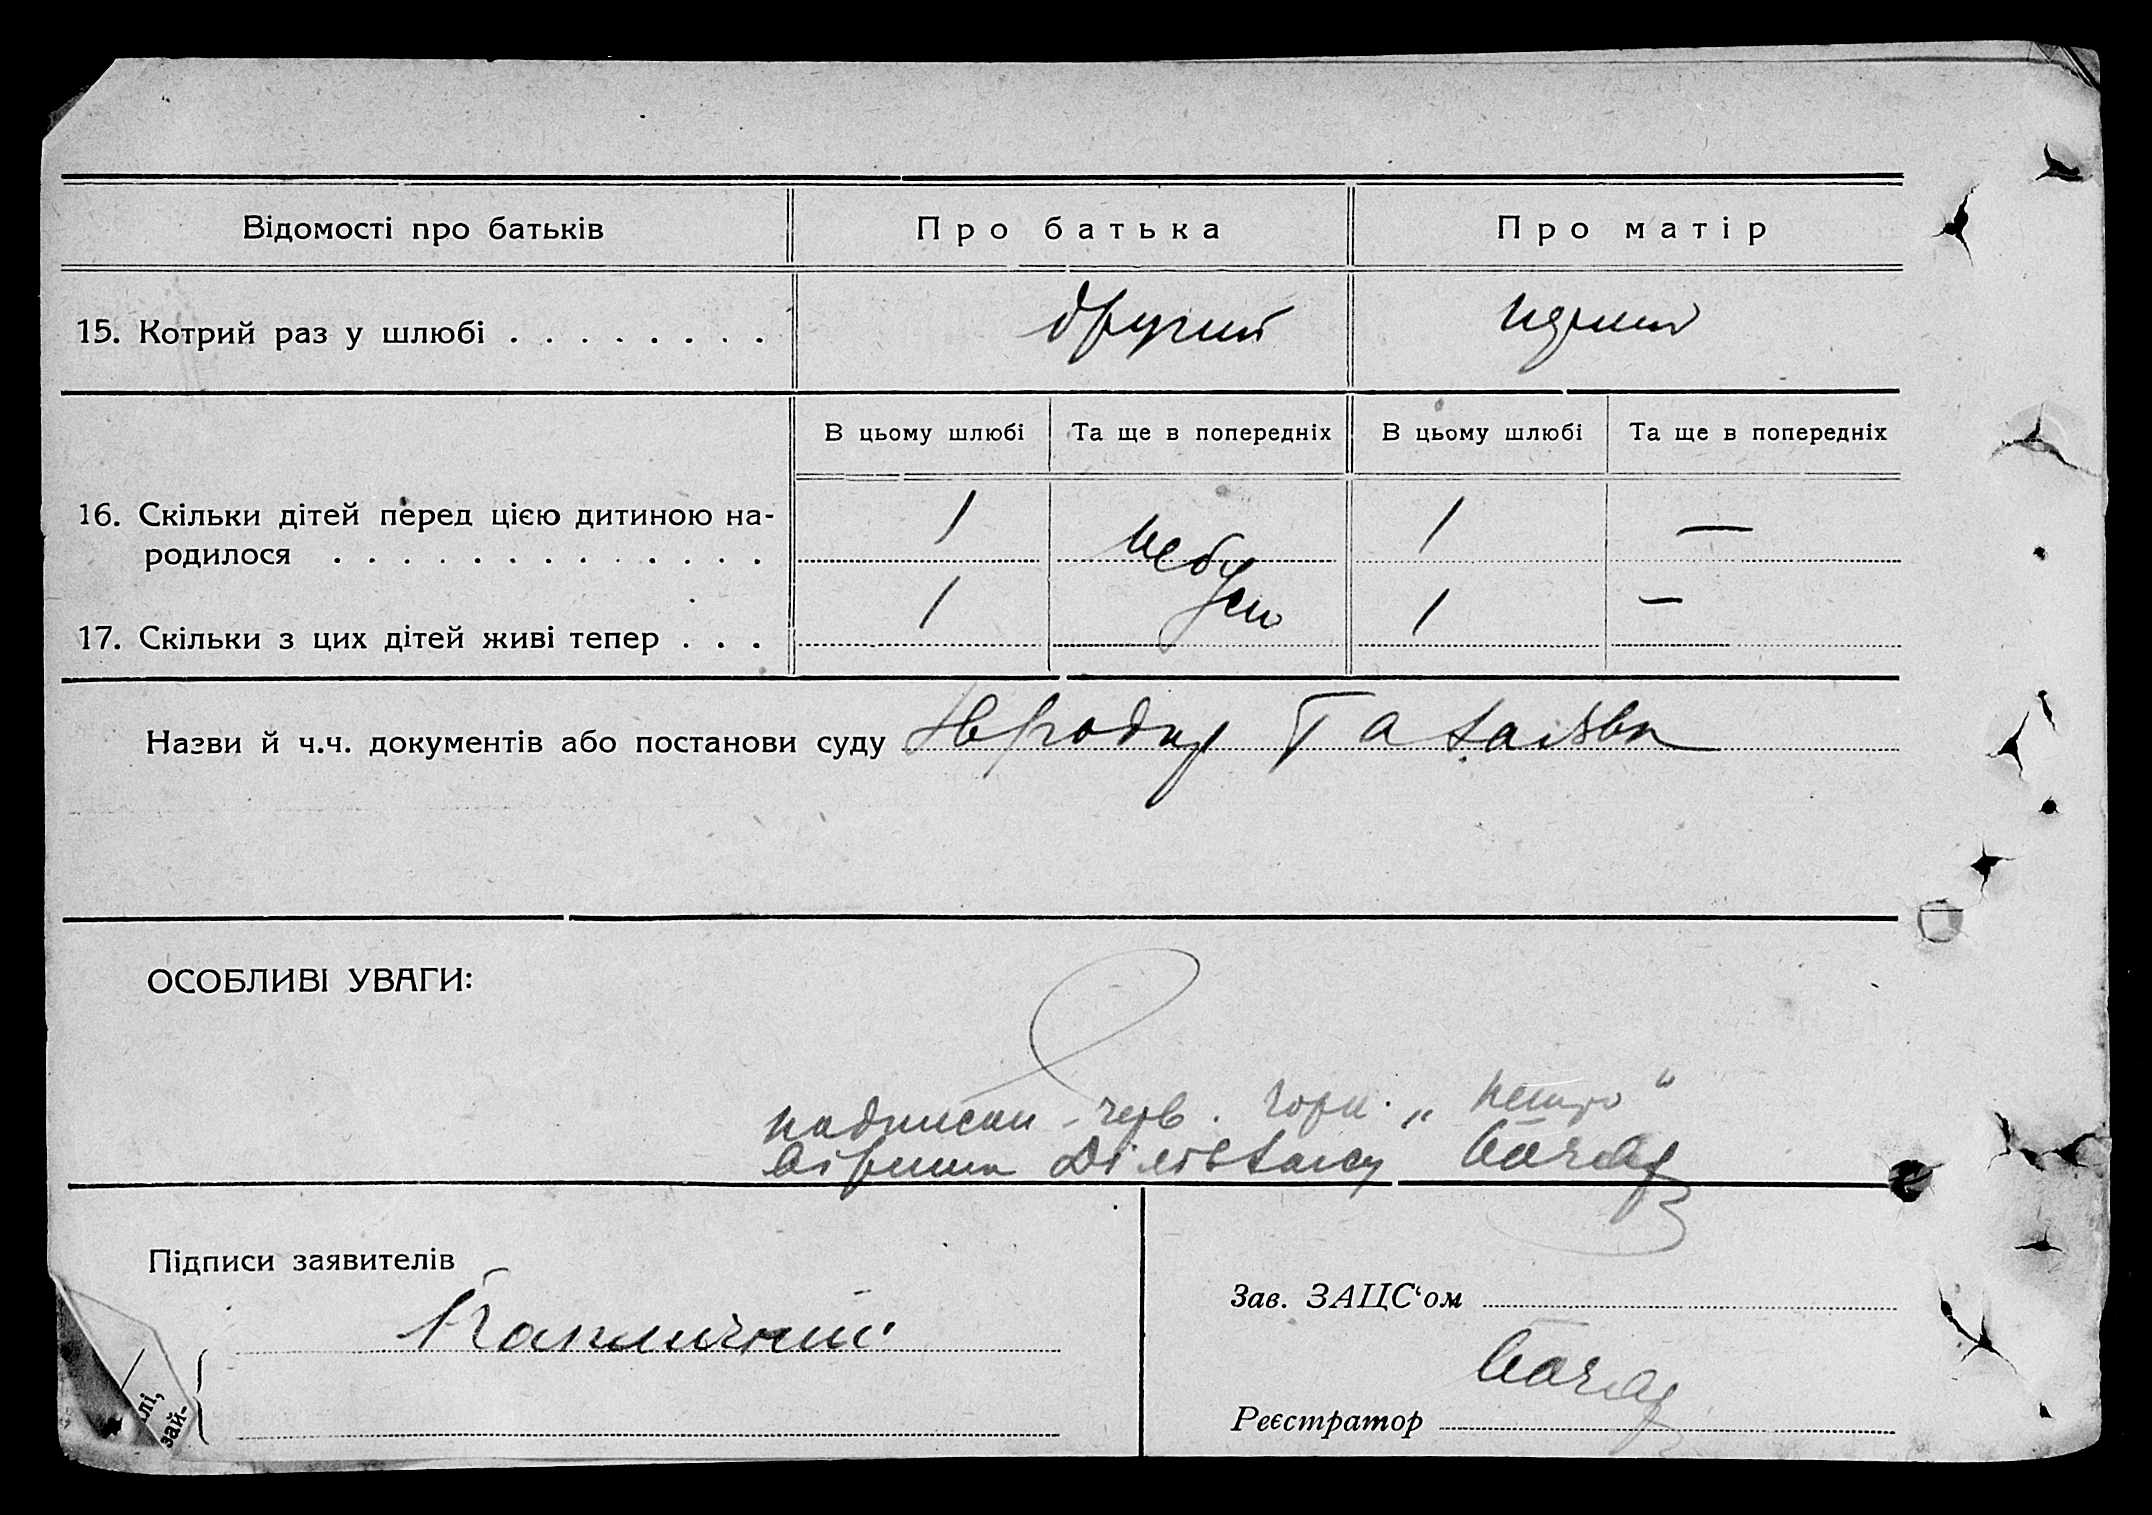 Відомості про батьків Про батька Про матір
15. Котрий раз у шлюбі . . . . . . . . другий
В цьому шлюбі Та ще в попередніх В цьому шлюбі Та ще в попередніх
16. Скільки дітей перед цією дитиною на-
родилося . . . . . . . . . . . . . 1 не було 1 —
17. Скільки з цих дітей живі тепер . . . 1 1 —
Назви й ч.ч. документів або постанови суду Та заява
ОСОБЛИВІ УВАГИ:
надписан черв. чорн. „ "
Підписи заявителів
Зав. ЗАЦС‘ом
Реєстратор
лі,
зай-